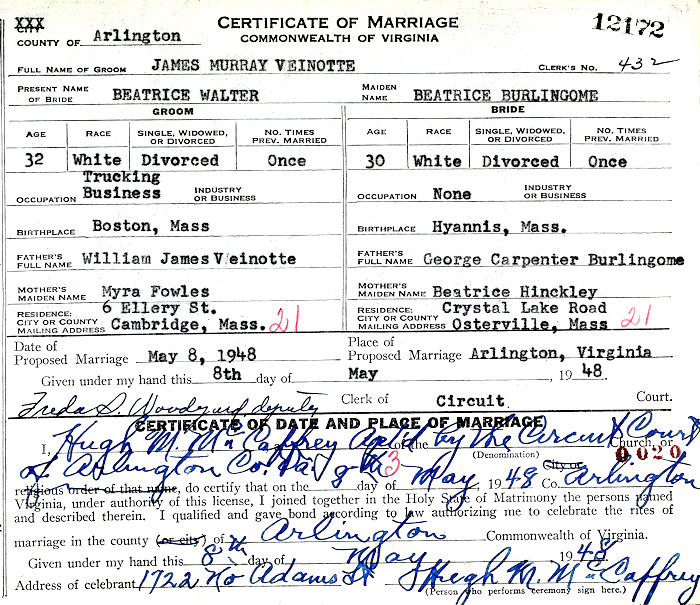 XXX CERTIFICATE OF MARRIAGE 12172
CITY
COUNTY OF Arlington COMMONWEALTH OF VIRGINIA
FULL NAME OF GROOM JAMES MURRAY VEINOTTE CLERK'S NO. 432
PRESENT NAME OF BRIDE BEATRICE WALTER MAIDEN NAME BEATRICE BURLINGOME
GROOM BRIDE
AGE RACE SINGLE, WIDOWED, OR DIVORCED NO. TIMES PREV. MARRIED AGE RACE SINGLE, WIDOWED, OR DIVORCED NO. TIMES PREV. MARRIED
32 White Divorced Once 30 White Divorced Once
Trucking
OCCUPATION Business INDUSTRY OR BUSINESS OCCUPATION None INDUSTRY OR BUSINESS
BIRTHPLACE Boston, Mass BIRTHPLACE Hyannis, Mass.
FATHER'S FULL NAME William James Veinotte FATHER'S FULL NAME George Carpenter Burlingome
MOTHER'S MAIDEN NAME Myra Fowles MOTHER'S MAIDEN NAME Beatrice Hinckley
RESIDENCE: 6 Ellery St. RESIDENCE: Crystal Lake Road
CITY OR COUNTY MAILING ADDRESS Cambridge, Mass. 21 CITY OR COUNTY MAILING ADDRESS Osterville, Mass 21
Date of Proposed Marriage May 8, 1948 Place of Proposed Marriage Arlington, Virginia
Given under my hand this 8th day of May, 1948.
Freda S. Woodyard, deputy Clerk of Circuit Court.
CERTIFICATE OF DATE AND PLACE OF MARRIAGE
I, Hugh M. McCaffrey Apt'd by the Circuit Court of the Church, or
(Denomination) 0.020
of Arlington Co. Va. 8th 3 May, 1948 City or Co. Arlington
religious order of that name, do certify that on the day of
Virginia, under authority of this license, I joined together in the Holy State of Matrimony the persons named
and described therein. I qualified and gave bond according to law authorizing me to celebrate the rites of
marriage in the county (or city) of Arlington Commonwealth of Virginia.
Given under my hand this 8th day of May 1948
Address of celebrant 1722 No Adams St Hugh M. McCaffrey
(Person who performs ceremony sign here.)